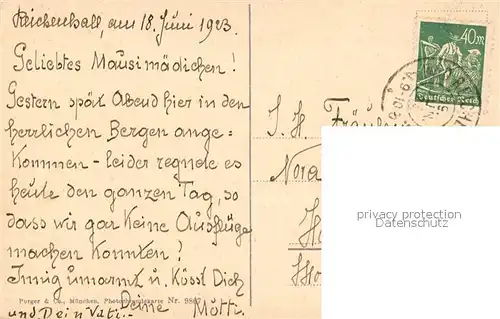 Reichenhall, am 18. Juni 1923.
Geliebtes Mausimädichen!
Gestern spät Abend hier in den
herrlichen Bergen ange=
kommen - leider regnete es
heute den ganzen Tag, so
dass wir gar keine Ausflüge
machen konnten!
Innig umarmt u. küsst Dich
Deine Mutti.
und Dein Vati.
Purger & Co., München, Photochromiekarte Nr. 9867
40 M
Deutsches Reich
I. H. Fräulein
Nora
privacy protection
Datenschutz